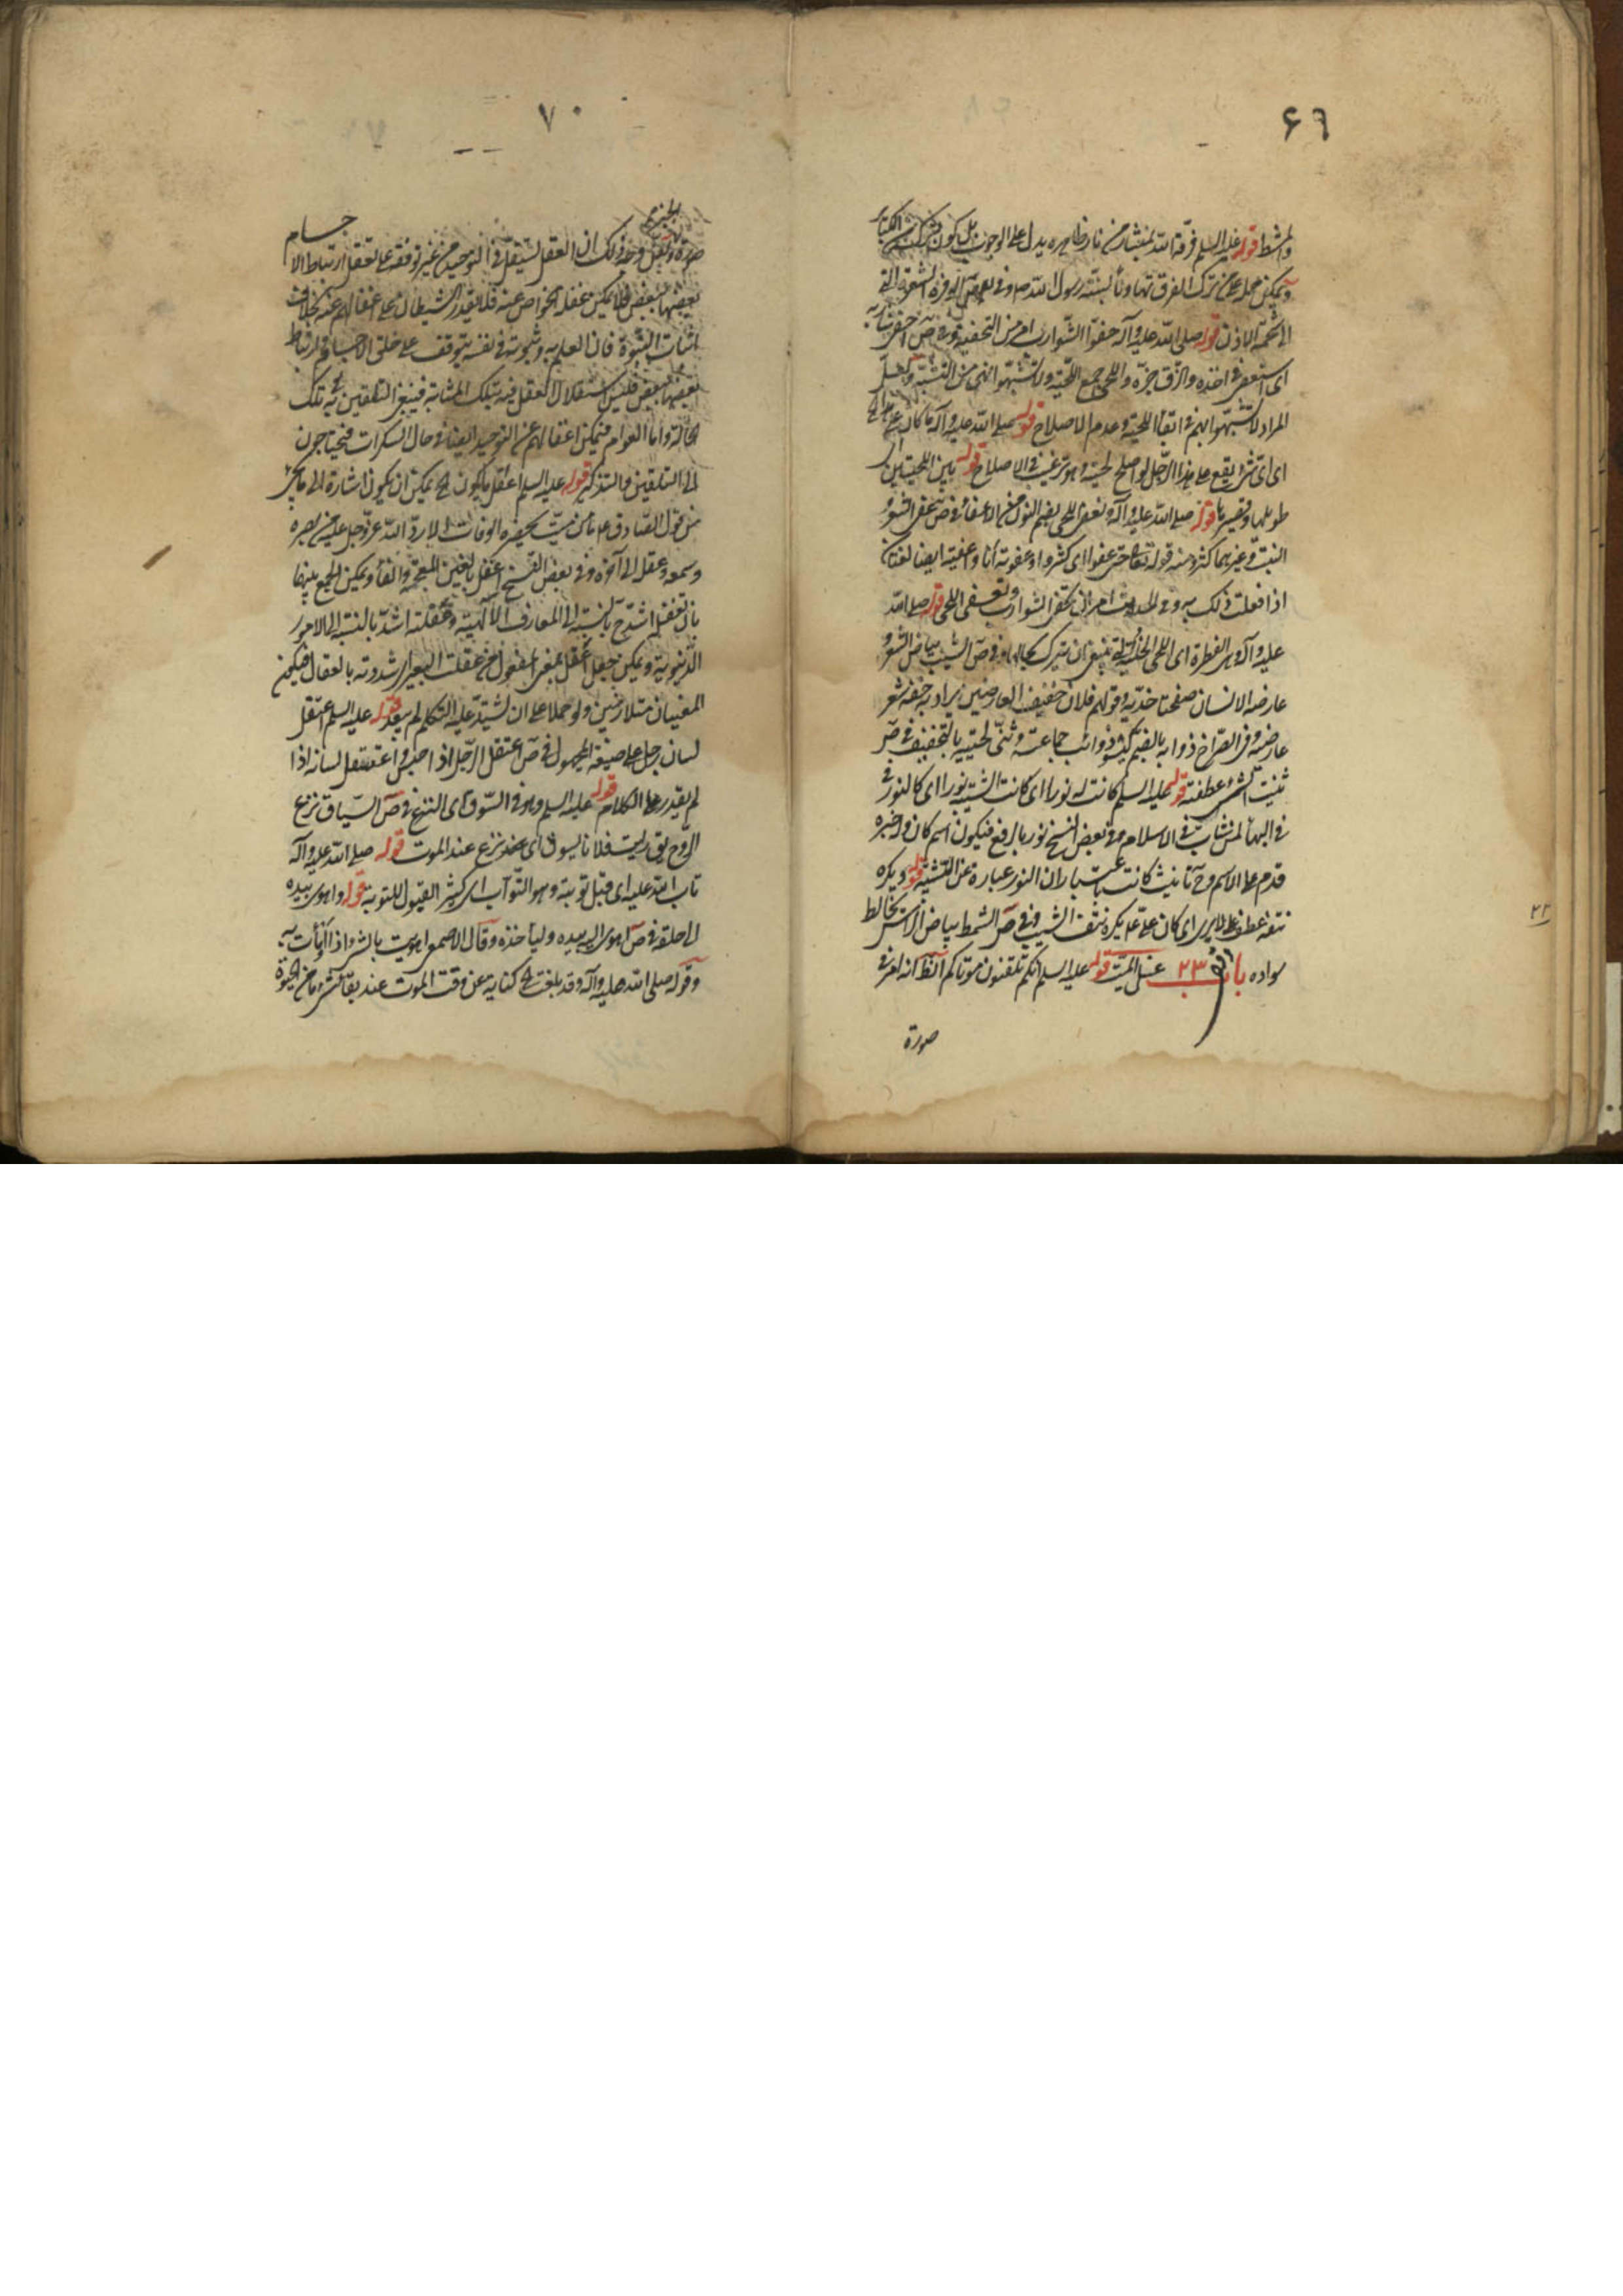 ۶۹
والمشط قوله عليه السلم فرقه الله بمنشار من نار ظاهره يدل على الوجوب بل كون تركه من الكبائر
ويمكن حمله على من ترك الفرق تهاونا بسنة رسول الله ص وفي بعض الوفرة الشعرة الى
الى شحمة الاذن قوله صلى الله عليه وآله حفوا الشوارب امر من التحفية وفي ص احفى شاربه
اى استقصى في اخذه والزق جزه واللحى جمع اللحية ولا تشبهوا نهى من التشبه ولعل
المراد لا تشبهوا بهم في اللحية وعدم الاصلاح قوله صلى الله عليه وآله ما كان على
اى اى شئ يقع على هذا الرجل لو اصلح لحيته وهو ترغيب في الاصلاح قوله بين اللحيتين اى
طويلها وقصيرها قوله صلى الله عليه وآله ونعفى اللحى بضم النون من الاعفاء في ص عفى الشعر و
النبت وغيرهما كثر ومنه قوله تعالى حتى عفوا اى كثروا وعفوته انا واعفيته ايضا لغتان
اذا فعلت ذلك به وفي الحديث امر ان تحفى الشوارب وتعفى اللحى قوله صلى الله
عليه وآله وهى الفطرة اى اللحى الخلقة ينبغى ان تترك بحالها وفي ص الشيب بياض الشعر و
عارضة الانسان صفحتا خديه وقولهم فلان خفيف العارضين يراد به خفة شعر
عارضيه وفي الصراح ذوابه بالضم كيسو ذوائب جماعة وثنى لحيته بالتخفيف في ص
ثنيت الشئ عطفته قوله عليه السلم كانت له نورا اى كانت الشيبة نورا اى كالنور في
في البهاء لمن شاب في الاسلام وفي بعض النسخ نور بالرفع فيكون اسم كان وله خبره
قدم على الاسم وح تانيث كانت باعتبار ان النور عبارة عن الشيبة قوله ويكره
نتفه عطف على لا يرى اى كان على ع يكره نتف الشيب وفي ص الشمط بياض الراس يخالط
سواده باب ٢٣ غسل الميت قوله عليه السلم انكم تلقنون موتاكم الظ انه امر في
صورة
٢٣
٧٠
صورة الخبر وخذ ذلك ان العقل يستقل في التوحيد من غير توقفه على تعقل ارتباط الاجسام
بعضها ببعض فلا يمكن غفلة الخواص عنه فلا يقدر الشيطان على اغفالهم عنه بخلاف
اثبات النبوة فان العلم به وثبوته في نفسه يتوقف على خلق الاجسام وارتباط
بعضها ببعض فليس استقلال العقل فيه بتلك المثابة فينبغى التلقين في تلك
الحالة واما العوام فيمكن اغفالهم عن التوحيد ايضا في حال السكرات فيحتاجون
الى التلقين والتذكير قوله عليه السلم اعقل ما يكون يمكن ان يكون اشارة الى ما يجئ
من قول الصادق ع ما من ميت يحضره الوفات الا رد الله عز وجل عليه من بصره
وسمعه وعقله الى آخره وفي بعض النسخ اغفل بالغين المعجمة والفاء ويمكن الجمع بينهما
بان تعقله اشد ح بالنسبة الى المعارف الالهية وغفلته اشد بالنسبة الى الامور
الدنيوية ويمكن جعل اعقل بمعنى المفعول من عقلت البعير اى شددته بالعقال فيكون
المعنيان متلازمين ولو حملا على ان يشتد عليه التكلم لم يبعد قوله عليه السلم اعتقل
لسان رجل على صيغة المجهول في ص اعتقل الرجل اذا حبس واعتقل لسانه اذا
لم يقدر على الكلام قوله عليه السلم وهو في السوق اى النزع في ص السياق نزع
الروح يق رايت فلانا يسوق اى ينزع عند الموت قوله صلى الله عليه وآله
تاب الله عليه اى قبل توبته وهو التواب اى كثير القبول للتوبة قوله واهوى بيده
الى حلقه في ص اهوى اليه بيده ولياخذه وقال الاصمعى اهويت بالشئ اذا اومات به
وقوله صلى الله عليه وآله وقد بلغت كناية عن وقت الموت عند بقاء شئ ما من الحيوة